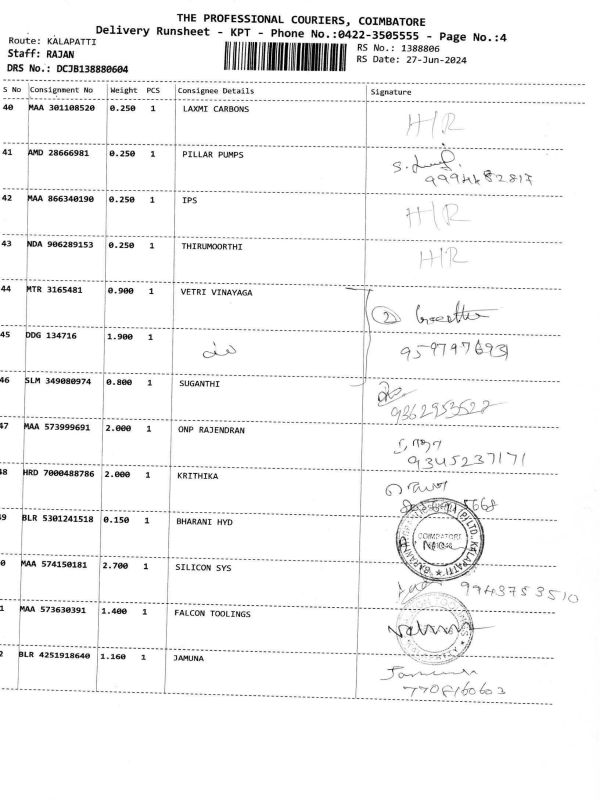 THE PROFESSIONAL COURIERS, COIMBATORE
Delivery Runsheet - KPT - Phone No.:0422-3505555 - Page No.:4
Route: KALAPATTI
RS No.: 1388806
Staff: RAJAN
RS Date: 27-Jun-2024
DRS No.: DCJB138880604
S No Consignment No Weight PCS Consignee Details Signature
40 MAA 301108520 0.250 1 LAXMI CARBONS H/R
41 AMD 28666981 0.250 1 PILLAR PUMPS
9994482817
42 MAA 866340190 0.250 1 IPS H/R
43 NDA 906289153 0.250 1 THIRUMOORTHI H/R
44 MTR 3165481 0.900 1 VETRI VINAYAGA
2
45 DDG 134716 1.900 1
9597976931
46 SLM 349080974 0.800 1 SUGANTHI
9362953528
47 MAA 573999691 2.000 1 ONP RAJENDRAN
9345237171
48 HRD 7000488786 2.000 1 KRITHIKA
5668
9 BLR 5301241518 0.150 1 BHARANI HYD
0 MAA 574150181 2.700 1 SILICON SYS
9943753510
1 MAA 573630391 1.400 1 FALCON TOOLINGS
2 BLR 4251918640 1.160 1 JAMUNA
7708160603